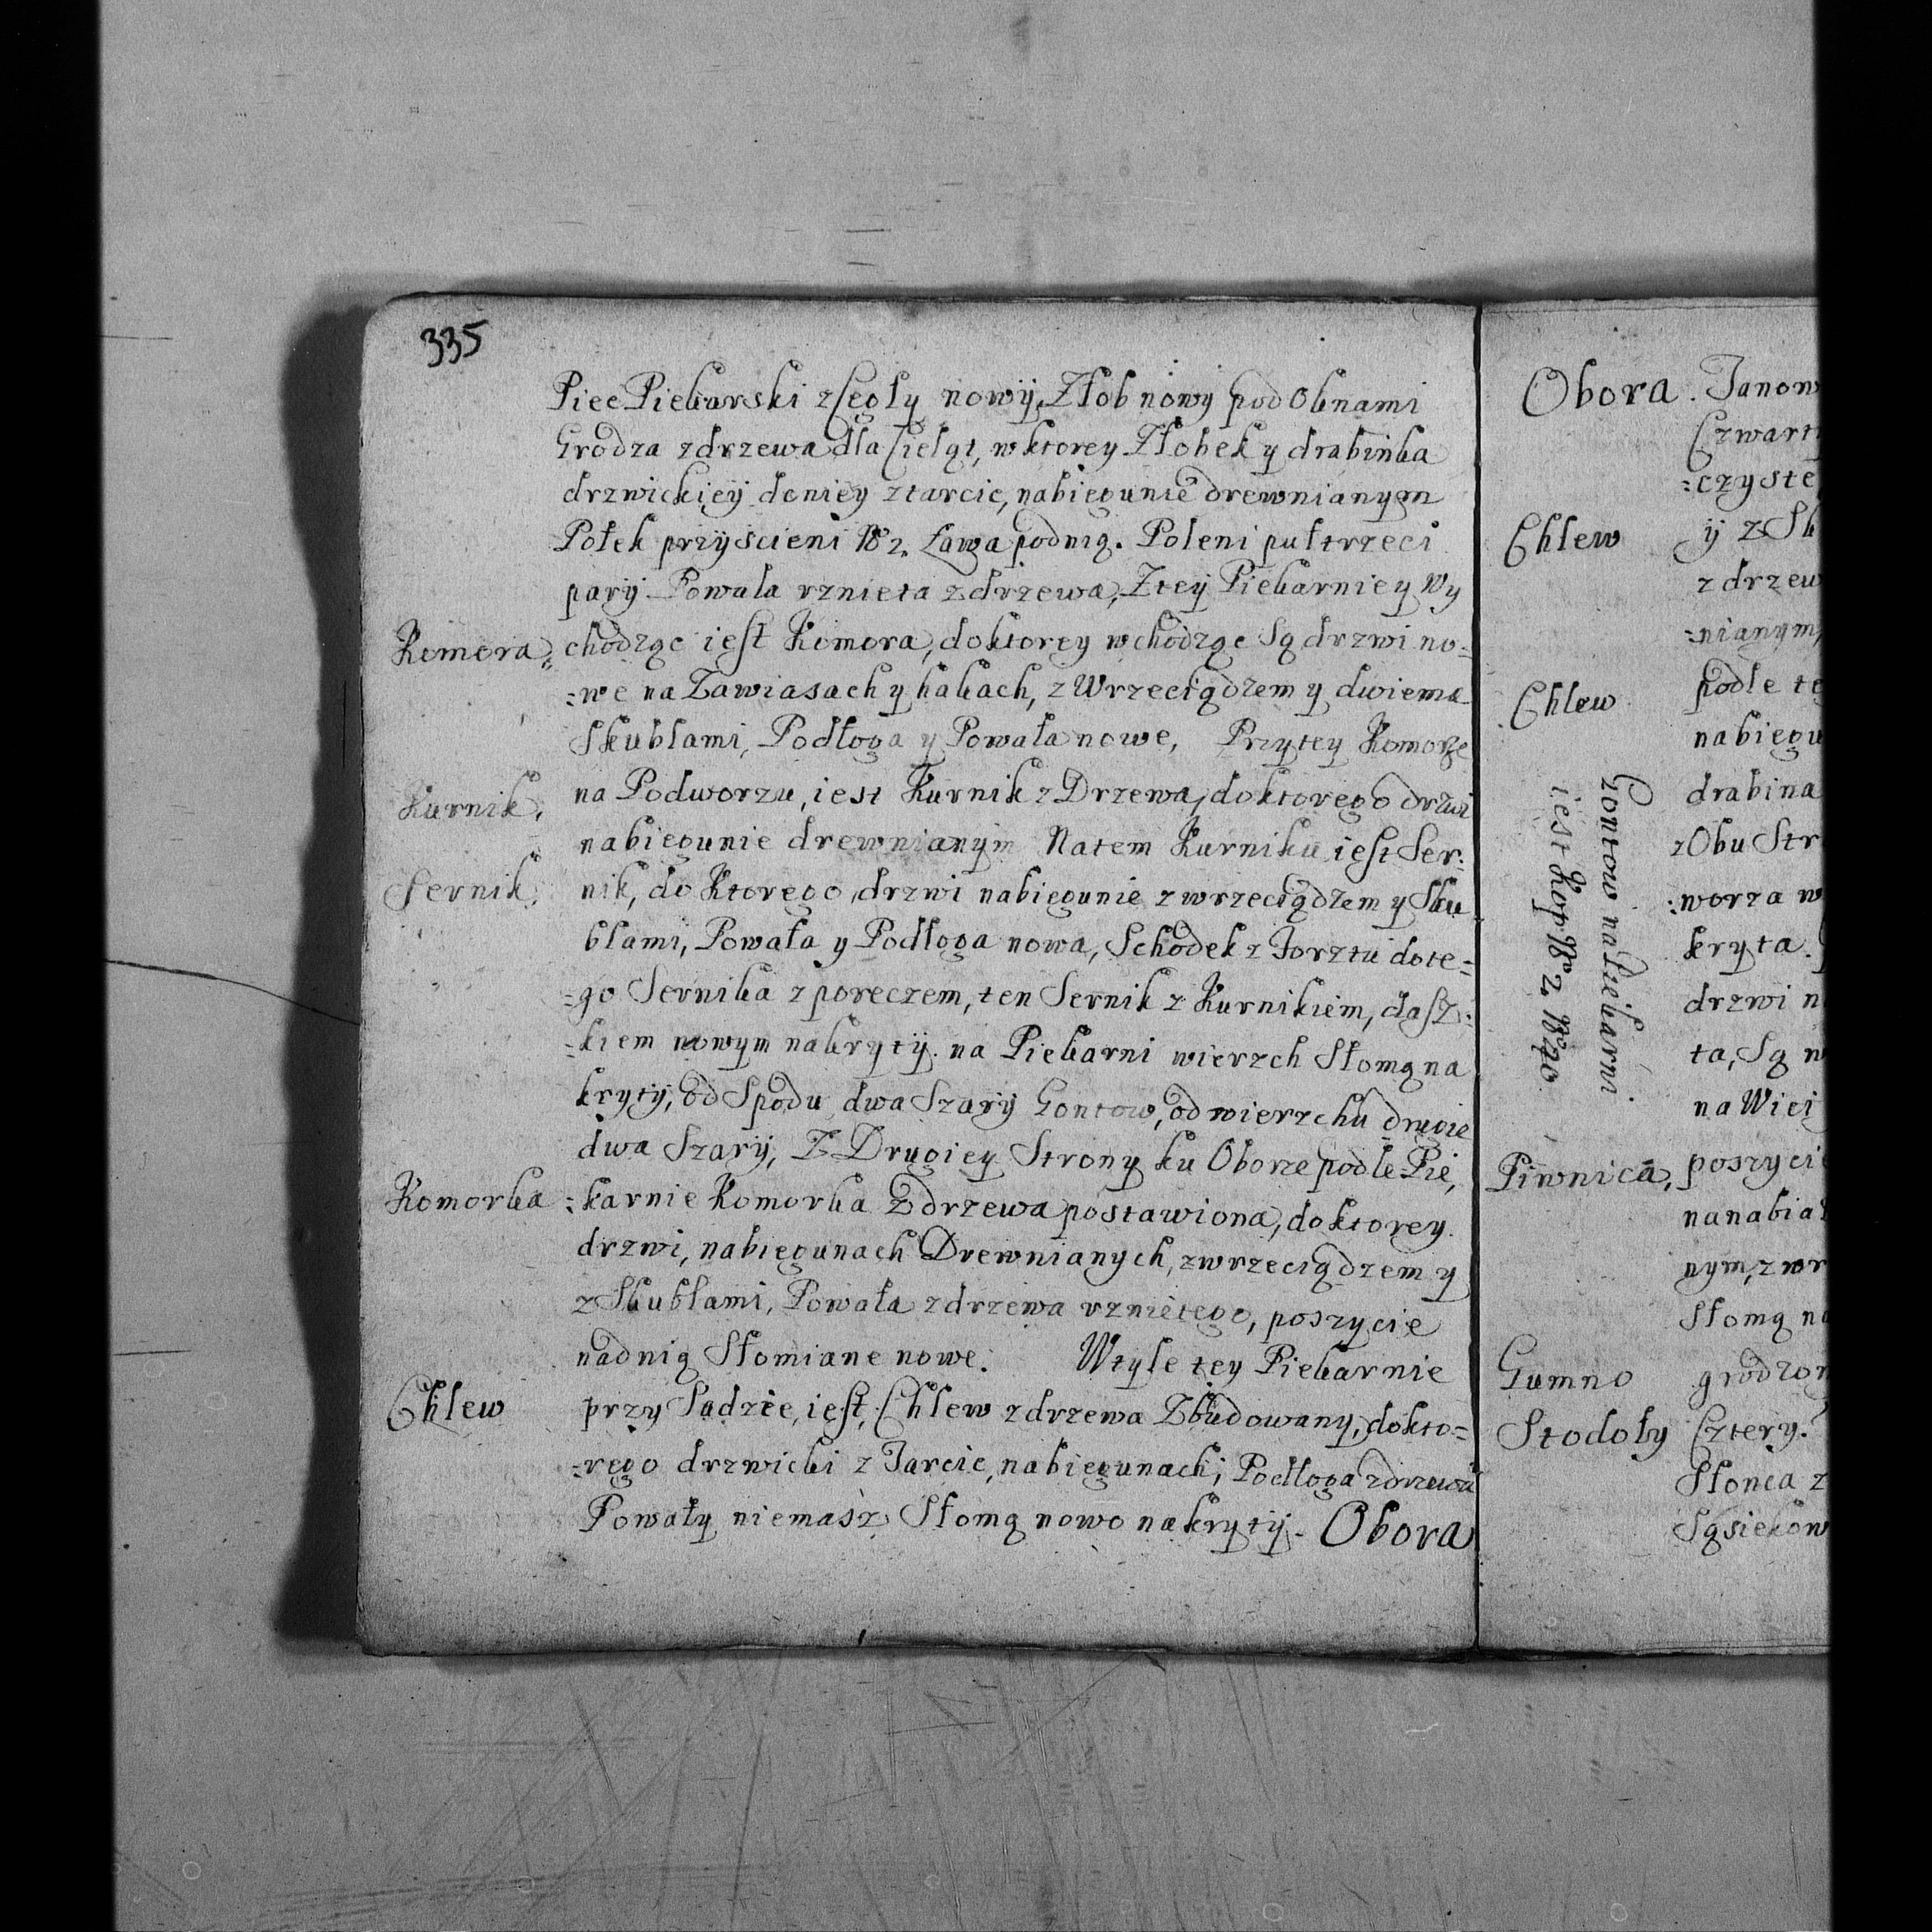 335
Piec Piekarski z Cegły nowÿ, Złob nowÿ pod Oknami
Grodza z drzewa dla Cieląt, w ktorey Złobek y drabinka
drzwickiey do niey z tarcic, na biegunie drewnianym
Połek przÿ scieni No 2. Ława pod nią. Poleni puł trzeci
parÿ Powała rznieta z drzewa, Z teÿ Piekarniey Wy
Komora, chodząc iest Komora, do ktorey wchodząc Są drzwi no=
=we na Zawiasach y hakach, z Wrzeciądzem y dwiema
Skublami, Podłoga y Powała nowe, Przy tey Komorze
Kurnik, na Podworzu, iest Kurnik z Drzewa, do ktorego drzwi
na biegunie drewnianÿm Na tem Kurniku iest Ser=
Sernik, nik, do Ktorego drzwi na biegunie z wrzeciądzem y Sku
blami, Powała y Podłoga nowa, Schodek z Forsztu do te=
=go Sernika z poreczem, ten Sernik z Kurnikiem, dasz=
=kiem nowym nakrytÿ. na Piekarni wierzch Słomą na
krytÿ, od Spodu dwa Szarÿ Gontow, od wierzchu drugie
dwa Szarÿ, Z Drugiey Strony ku Oborze podle Pie,
Komorka =karnie Komorka Z drzewa postawiona, do ktorey
drzwi, na biegunach Drewnianych, z wrzeciądzem y
z Skublami, Powała z drzewa rznietego, poszycie
nad nią Słomiane nowe. W tyle tey Piekarnie
Chlew przy Sadzie, iest, Chlew z drzewa Zbudowany, do kto=
=rego drzwicki z Tarcic, na biegunach, Podłoga z drzewa
Powały niemasz Słomą nowo nakrytÿ. Obora
Obora. Janow
Czwart
=czyste
Chlew ÿ z Sk
z drzew
=nianym,
Chlew podle te
na biegu
drabina
z Obu Str
=worza w
kryta.
drzwi n
ta, Są w
na Wiei
Gontow na Piekarni
iest Kop No 2 No 20
Piwnica, poszycie
na nabia
nym, z wr
Słomą na
Gumno grodzon
Stodoły Cztery.
Słonca z
Sąsiekow